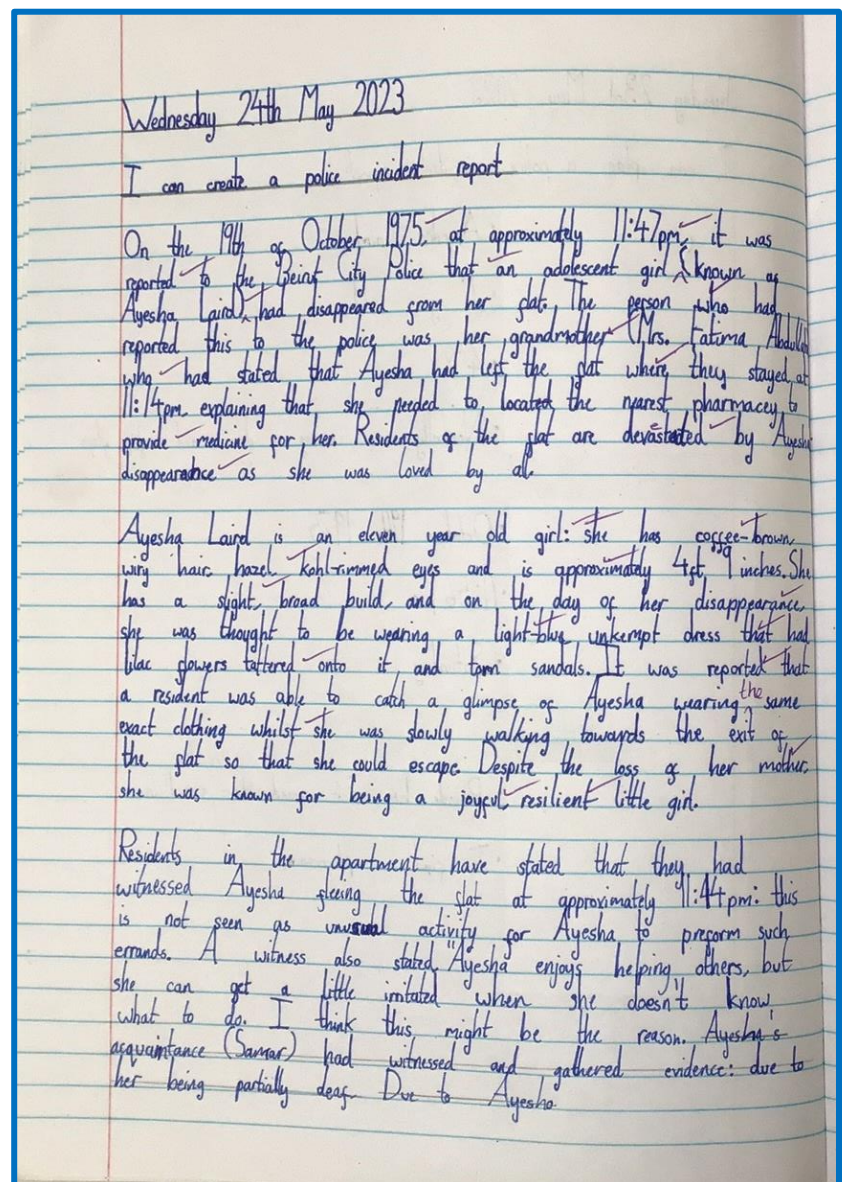 Wednesday 24th May 2023
I can create a police incident report
On the 19th of October 1975, at approximately 11:47pm, it was
reported to the Beirut City Police that an adolescent girl (known as
Ayesha Laird) had disappeared from her flat. The person who had
reported this to the police was her grandmother (Mrs. Fatima Abdullah
who had stated that Ayesha had left the flat where they stayed at
11:14pm explaining that she needed to located the nearest pharmacey to
provide medicine for her. Residents of the flat are devastated by Ayesha
disappearance as she was loved by all.
Ayesha Laird is an eleven year old girl: she has coffee-brown,
wiry hair, hazel kohl-rimmed eyes and is approximately 4ft 9 inches. She
has a slight, broad build, and on the day of her disappearance,
she was thought to be wearing a light-blue unkempt dress that had
lilac flowers tattered onto it and torn sandals. It was reported that
a resident was able to catch a glimpse of Ayesha wearing the same
exact clothing whilst she was slowly walking towards the exit of
the flat so that she could escape. Despite the loss of her mother,
she was known for being a joyful, resilient little girl.
Residents in the apartment have stated that they had
witnessed Ayesha fleeing the flat at approximately 11:44pm: this
is not seen as unusual activity for Ayesha to preform such
errands. A witness also stated "Ayesha enjoys helping others, but
she can get a little irritated when she doesn't know
what to do. I think this might be the reason. Ayesha's
acquaintance (Samar) had witnessed and gathered evidence: due to
her being partially deaf. Due to Ayesha